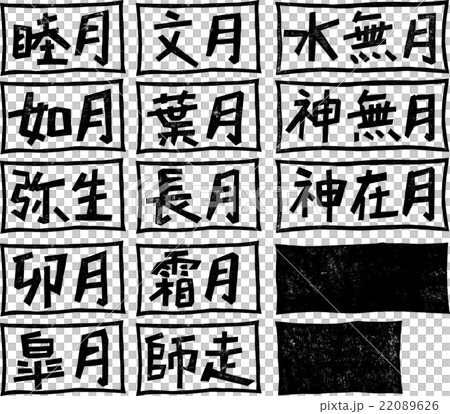 睦月 文月 水無月
如月 葉月 神無月
弥生 長月 神在月
卯月 霜月
皐月 師走
pixta.jp - 22089626